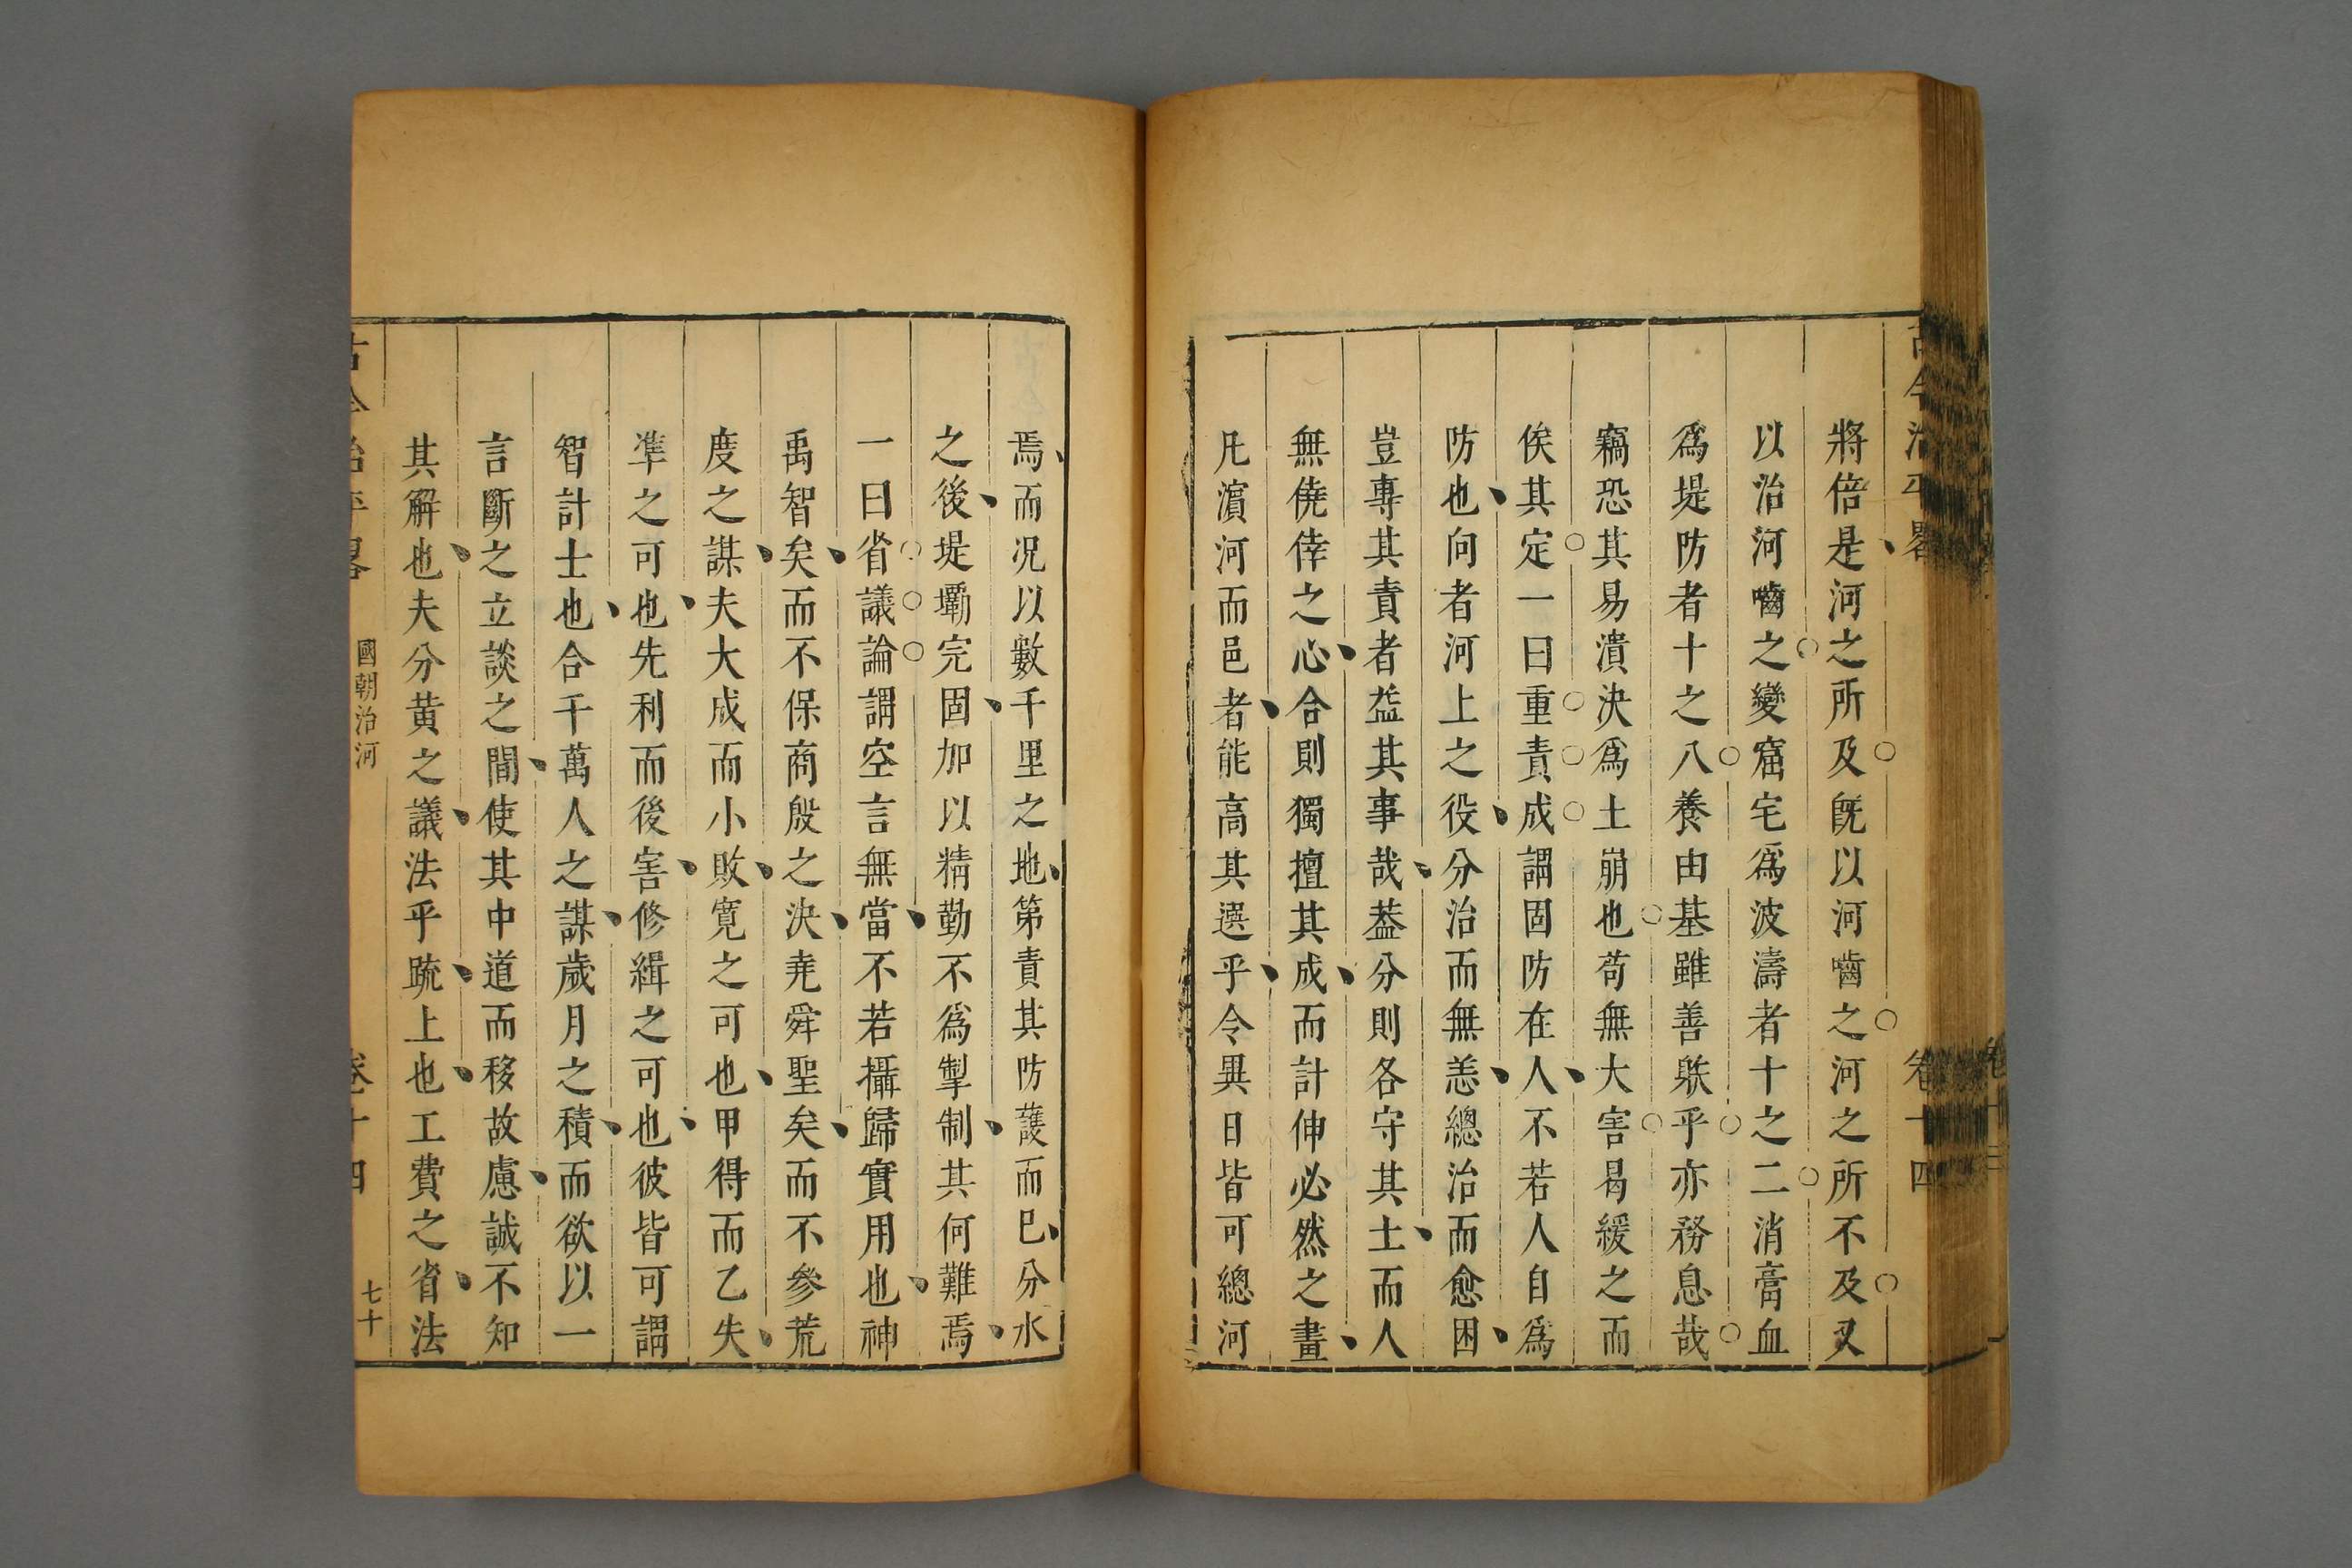 古今治平畧
卷十四
將倍是河之所及旣以河嚙之河之所不及又
以治河嚙之變窟宅爲波濤者十之二消膏血
爲堤防者十之八養由基雖善躲乎亦務息哉
竊恐其易潰決爲土崩也苟無大害曷緩之而
俟其定一曰重責成謂固防在人不若人自爲
防也向者河上之役分治而無恙總治而愈困
豈專其責者益其事哉葢分則各守其土而人
無僥倖之心合則獨擅其成而計伸必然之畫
凡濵河而邑者能高其選乎令異日皆可總河
焉而况以數千里之地第責其防護而已分水
之後堤壩完固加以精勤不爲掣制其何難焉
一曰省議論謂空言無當不若攝歸實用也神
禹智矣而不保商殷之決尭舜聖矣而不參荒
度之謀夫大成而小敗寛之可也甲得而乙失
準之可也先利而後害修緝之可也彼皆可謂
智計士也合千萬人之謀歲月之積而欲以一
言斷之立談之間使其中道而移故慮誠不知
其解也夫分黄之議法乎䟽上也工費之省法
古今治平畧
國朝治河
卷十四
七十